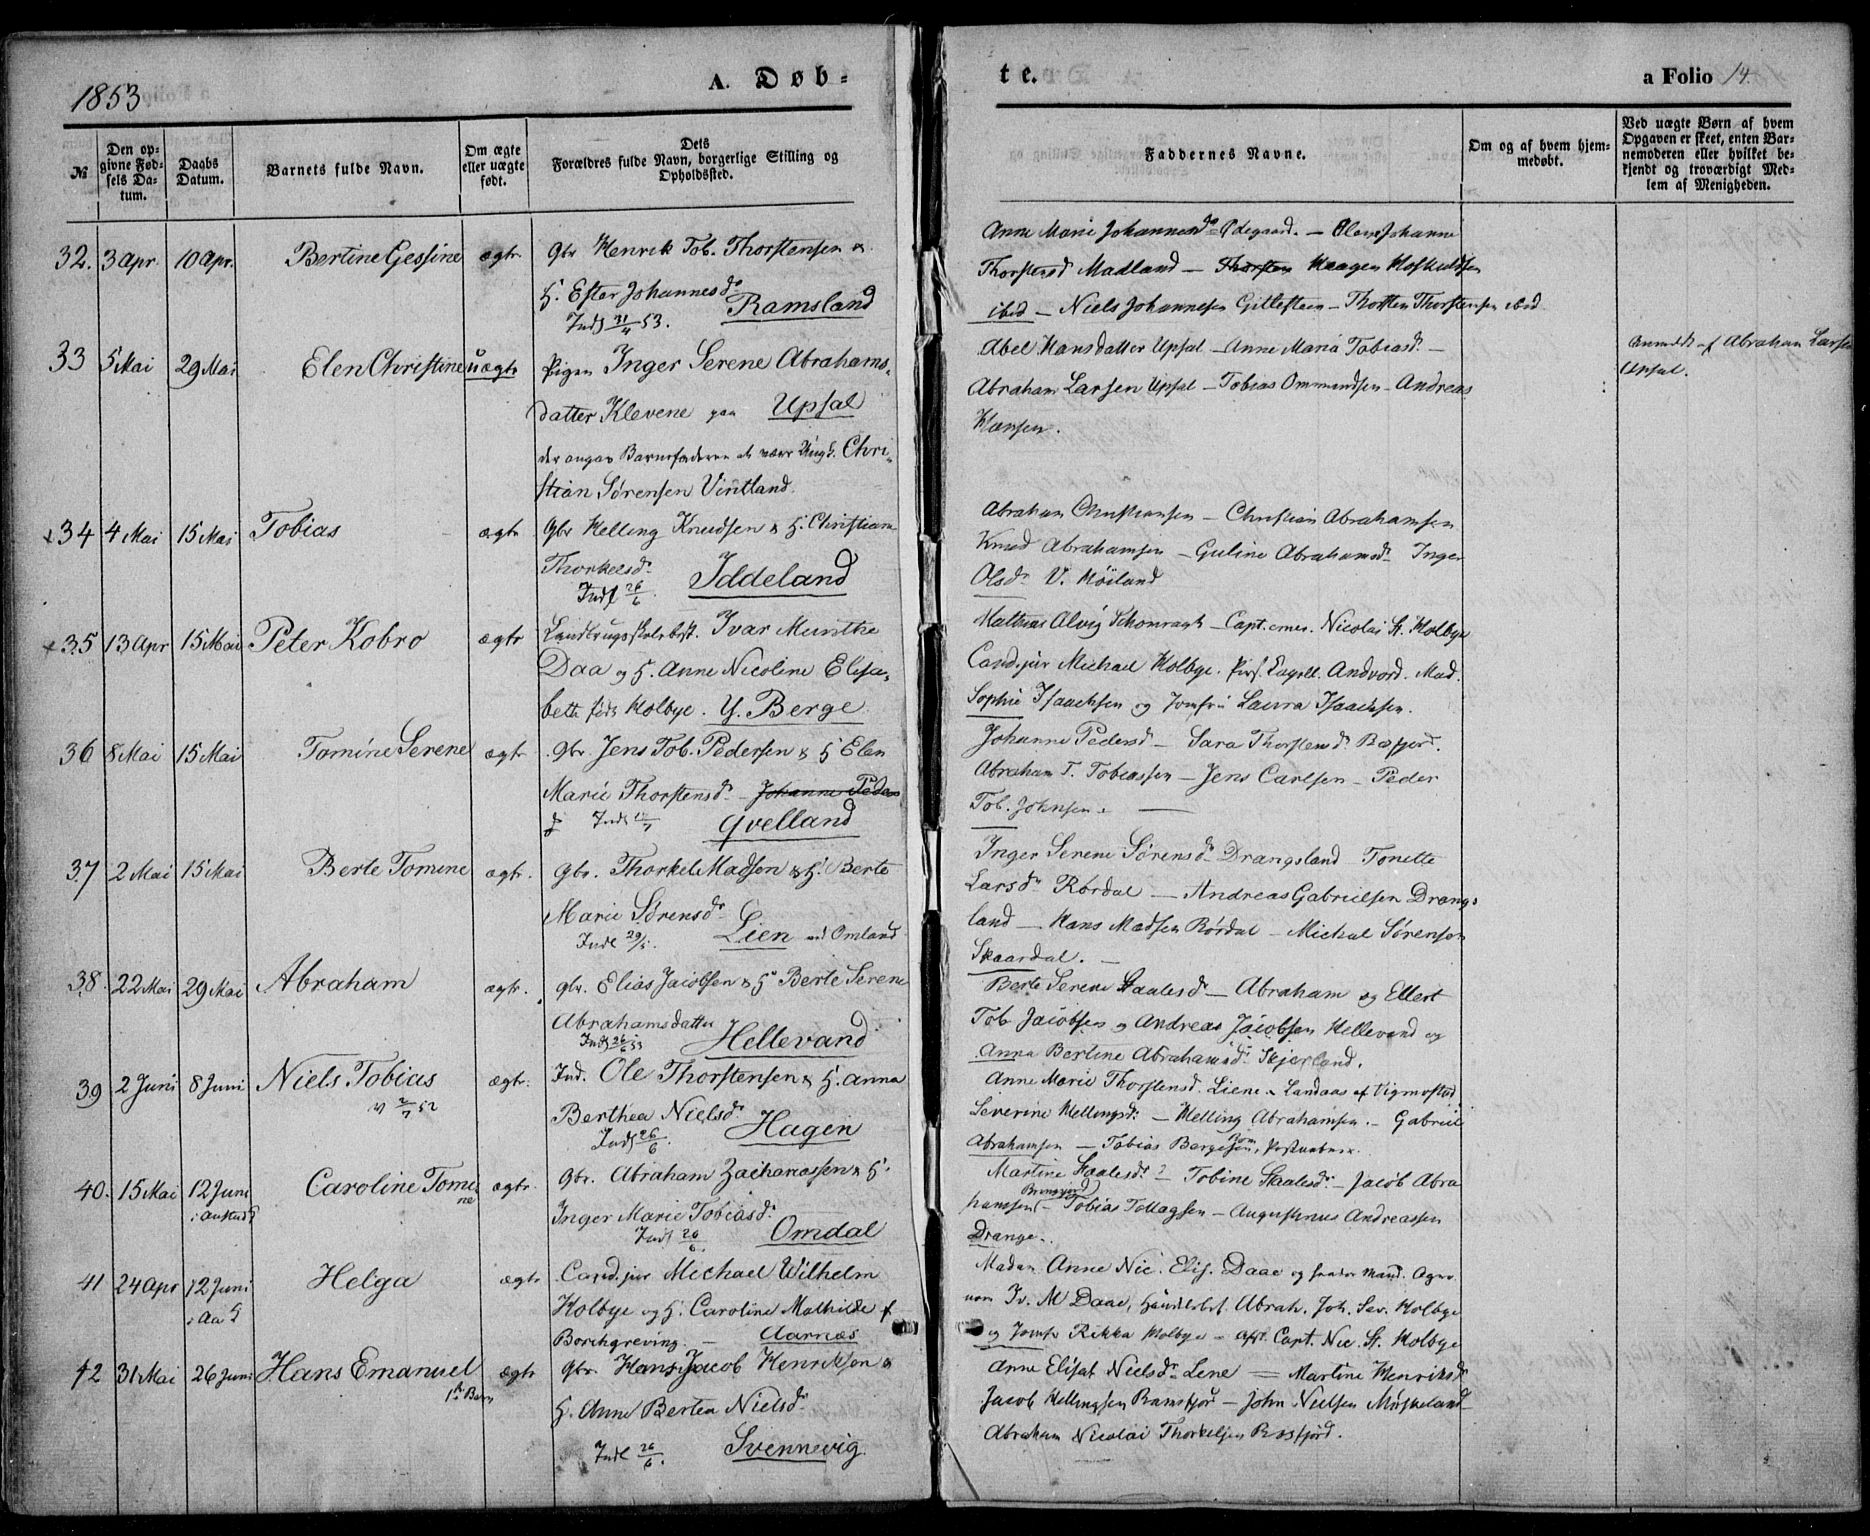 1853
A. Døb-
te.
a Folio 14.
№
Den opgivne Fødsels Datum.
Daabs Datum.
Barnets fulde Navn.
Om ægte eller uægte født.
Dets Forældres fulde Navn, borgerlige Stilling og Opholdssted.
Faddernes Navne.
Om og af hvem hjemmedøbt.
Ved uægte Børn af hvem Opgaven er skeet, enten Barnemoderen eller hvilket bekjendt og troværdigt Medlem af Menigheden.
32. 3 Apr. 10 Apr. Bertine Gessine ægtr Gbr Henrik Tob. Thorstensen &
H. Ester Johannesdr
Inds 31/4 53. Ramsland
Anne Marie Johannesdr Ødegaard. — Elen Johanne
Thorstensd Madland — Thorsten Haagen Hoskuldsen
ibid — Niels Johannesen Gitlesteen — Thosten Thorstensen ibid
33 5 Mai 29 Mai Elen Christine uægtr Pigen Inger Serene Abrahams-
datter Klevene paa Upsal
der angav Barnefaderen at være Ungk. Chri-
stian Sørensen Vintland.
Abel Hansdatter Upsal — Anne Maria Tobiasdr —
Abraham Larsen Upsal — Tobias Ommundsen — Andreas
Hansen.
Anmeldt af Abraham Larsen
Upsal.
34 4 Mai 15 Mai Tobias ægtr Gbr Helling Knudsen & H. Christiane
Thorkelsdr
Inds 26/6. Iddeland
Abraham Christiansen — Christian Abrahamsen
Knud Abrahamsen — Guline Abrahamsdr Inger
Olsdr V. Høiland
35 13 Apr 15 Mai Peter Kobro ægtr Landbrugsskolebst. Ivar Munthe
Daa og H. Anne Nicoline Elisa-
beth føds Holbye. Y. Berge
Mathias Alvig Schonragt — Capt. emer. Nicolai St. Holbye
Cand. jur Michael Holbye. Pers. Capell. Andvord. Mad.
Sophie Isaachsen og Jomfru Laura Isaachsen.
36 8 Mai 15 Mai Tomine Serene ægtr. Gbr. Jens Tob. Pedersen & H Elen
Marie Thorstensdr — Johanne Peders
Inds Qvelland
Johanne Pedersd — Sara Thorstensdr Rosfjord.
Abraham T. Tobiassen — Jens Carlsen — Peder
Tob. Johnsen. —
37 2 Mai 15 Mai Berte Tomine ægtr. Gbr. Thorkel Madsen & H. Berte
Marie Sørensdr
Inds 29/5. Lien ved Omland
Inger Serene Sørensdr Drangsland Tonette
Larsdr Rørdal — Andreas Gabrielsen Drangs-
land — Hans Madsen Rørdal — Michal Sørensen
Skaardal. —
38. 22 Mai 29 Mai Abraham ægtr. gbr. Elias Jacobsen & H Berte Serene
Abrahamsdatter
Inds 26/6 53 Hellevand
Berte Serene Staalesd — Abraham og Ellert
Tob. Jacobsen og Andreas Jacobsen Hellevand og
Anna Bertine Abrahamsdr Skjerland.
39 2 Juni 8 Juni Niels Tobias ægtr. Ind. Ole Thorstensen & H. Anna
Berthea Nielsdr
Inds 26/6. Hagen
Anne Marie Thorstensd. Liene. Landaas af Vigmostad.
Severine Hellingsdr — Helling Abrahamsen. — Gabriel
Abrahamsen — Tobias Bergesen, Postaabner.
40. 15 Mai 12 Juni Caroline Tomi-
ne ægtr. Gbr. Abraham Zachariassen & H.
Inger Marie Tobiasdr.
Inds 26/6. Omdal
Martine Staalesdr — Tobine Staalesdr — Jacob Abra
hamsen — Tobias Tollagsen — Augustinus Andreassen
Drange.
41 24 Apr 12 Juni Helga ægtr Cand. jur Michael Wilhelm
Holbye og H. Caroline Mathilde f
Borchgreving. — Aarnæs
Madam Anne Nic. Elis. Daae og hendes Mand. Agro
nom Iv. M Daae, Handelsbst. Abrah. Joh. Sev. Holbye
og Jomfr Rikka Holbye — Capt. Nic. St. Holbye
42 31 Mai 26 Juni Hans Emanuel
1ste Barn ægtr Gbr. Hans Jacob Henriksen &
H. Anne Bertea Nielsdr
Inds 26/6. Svennevig
Anne Elisat Nielsdr Lene — Martine Henriksdr
Jacob Hellingsen Ramsfjord — John Nielsen Møskeland
Abraham Nicolai Thorkelsen Rosfjord.